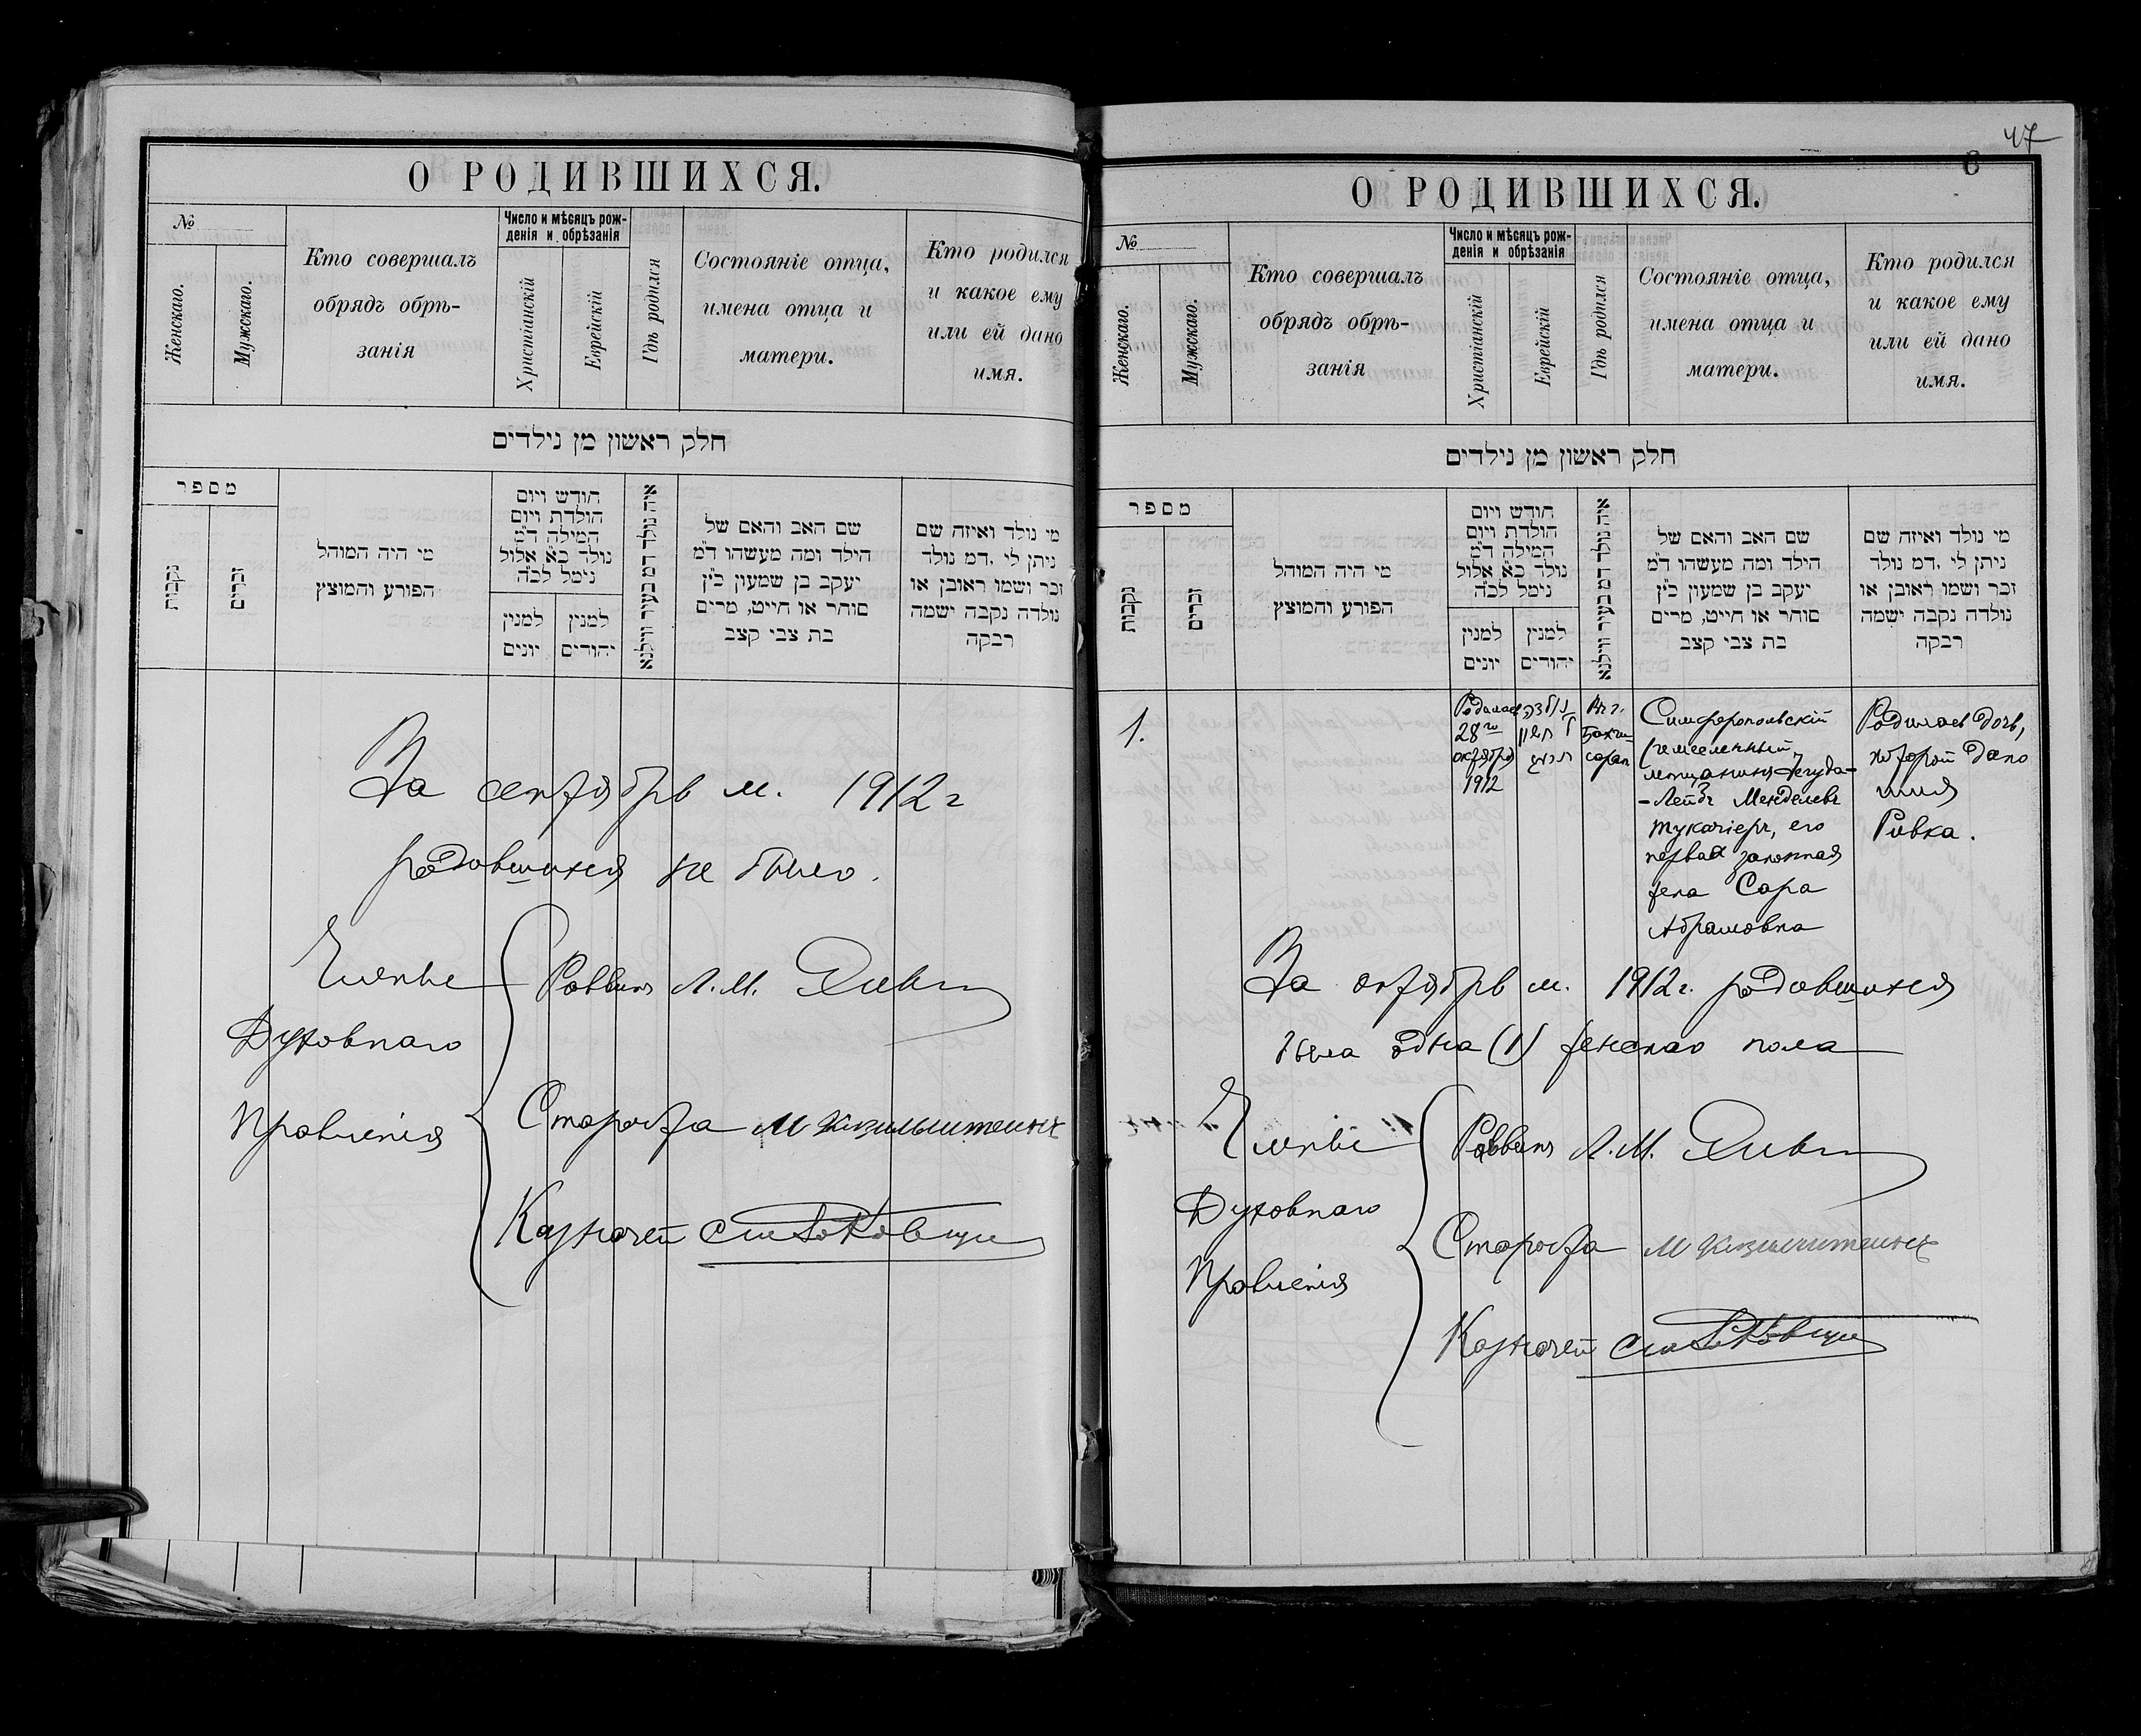 О РОДИВШИХСЯ.
№
Женскаго.
Мужскаго.
Кто совершалъ
обрядъ обрѣ-
занія
Число и мѣсяцъ рож-
денія и обрѣзанія
Христіанскій
Еврейскій
Гдѣ родился
Состояніе отца,
имена отца и
матери.
Кто родился
и какое ему
или ей дано
имя.
חלק ראשון מן נילדים
מספר
נקבות
זכרים
מי היה המוהל
הפורע והמוצץ
חודש ויום
הולדת ויום
המילה ד״מ
נולד כ״א אלול
נימל לכ״ה
למנין
יונים
למנין
יהודים
איה נולד דמ בעיר ווילנא
שם האב והאם של
הילד ומה מעשהו ד״מ
יעקב בן שמעון כ״ץ
סוחר או חייט, מרים
בת צבי קצב
מי נולד ואיזה שם
ניתן לי .דמ נולד
זכר ושמו ראובן או
נולדה נקבה ישמה
רבקה
За сентябрь м. 1912 г
родившихся не было.
Члены
Духовнаго
Правленія
Раввинъ Л. М.
Староста М
Казначей
47
6
О РОДИВШИХСЯ.
№
Женскаго.
Мужскаго.
Кто совершалъ
обрядъ обрѣ-
занія
Число и мѣсяцъ рож-
денія и обрѣзанія
Христіанскій
Еврейскій
Гдѣ родился
Состояніе отца,
имена отца и
матери.
Кто родился
и какое ему
или ей дано
имя.
חלק ראשון מן נילדים
מספר
נקבות
זכרים
מי היה המוהל
הפורע והמוצץ
חודש ויום
הולדת ויום
המילה ד״מ
נולד כ״א אלול
נימל לכ״ה
למנין
יונים
למנין
יהודים
איה נולד דמ בעיר ווילנא
שם האב והאם של
הילד ומה מעשהו ד״מ
יעקב בן שמעון כ״ץ
סוחר או חייט, מרים
בת צבי קצב
מי נולד ואיזה שם
ניתן לי .דמ נולד
זכר ושמו ראובן או
נולדה נקבה ישמה
רבקה
1.
Родилась
28го
октября
1912
נולדה
חשון
תרעג
Въ г.
Бахчи-
сараѣ
Симферопольскій
ремесленный
мѣщанинъ Іегуда-
-Лейбъ Менделевъ
Тукачieръ, его
первая законная
жена Сара
Абрамовна
Родилась дочь,
которой дано
имя
Ривка.
За октябрь м. 1912 г. родившихся
была одна (1) женскаго пола
Члены
Духовнаго
Правленія
Раввинъ Л. М.
Староста М
Казначей